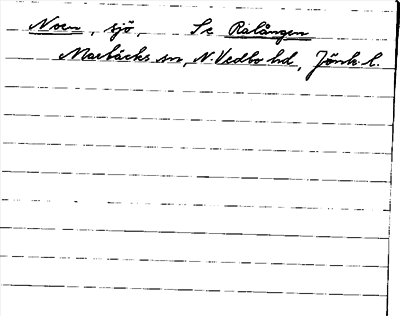 Noen, sjö, Se Ralången
Marbäcks sn, N. Vedbo hd, Jönk. l.